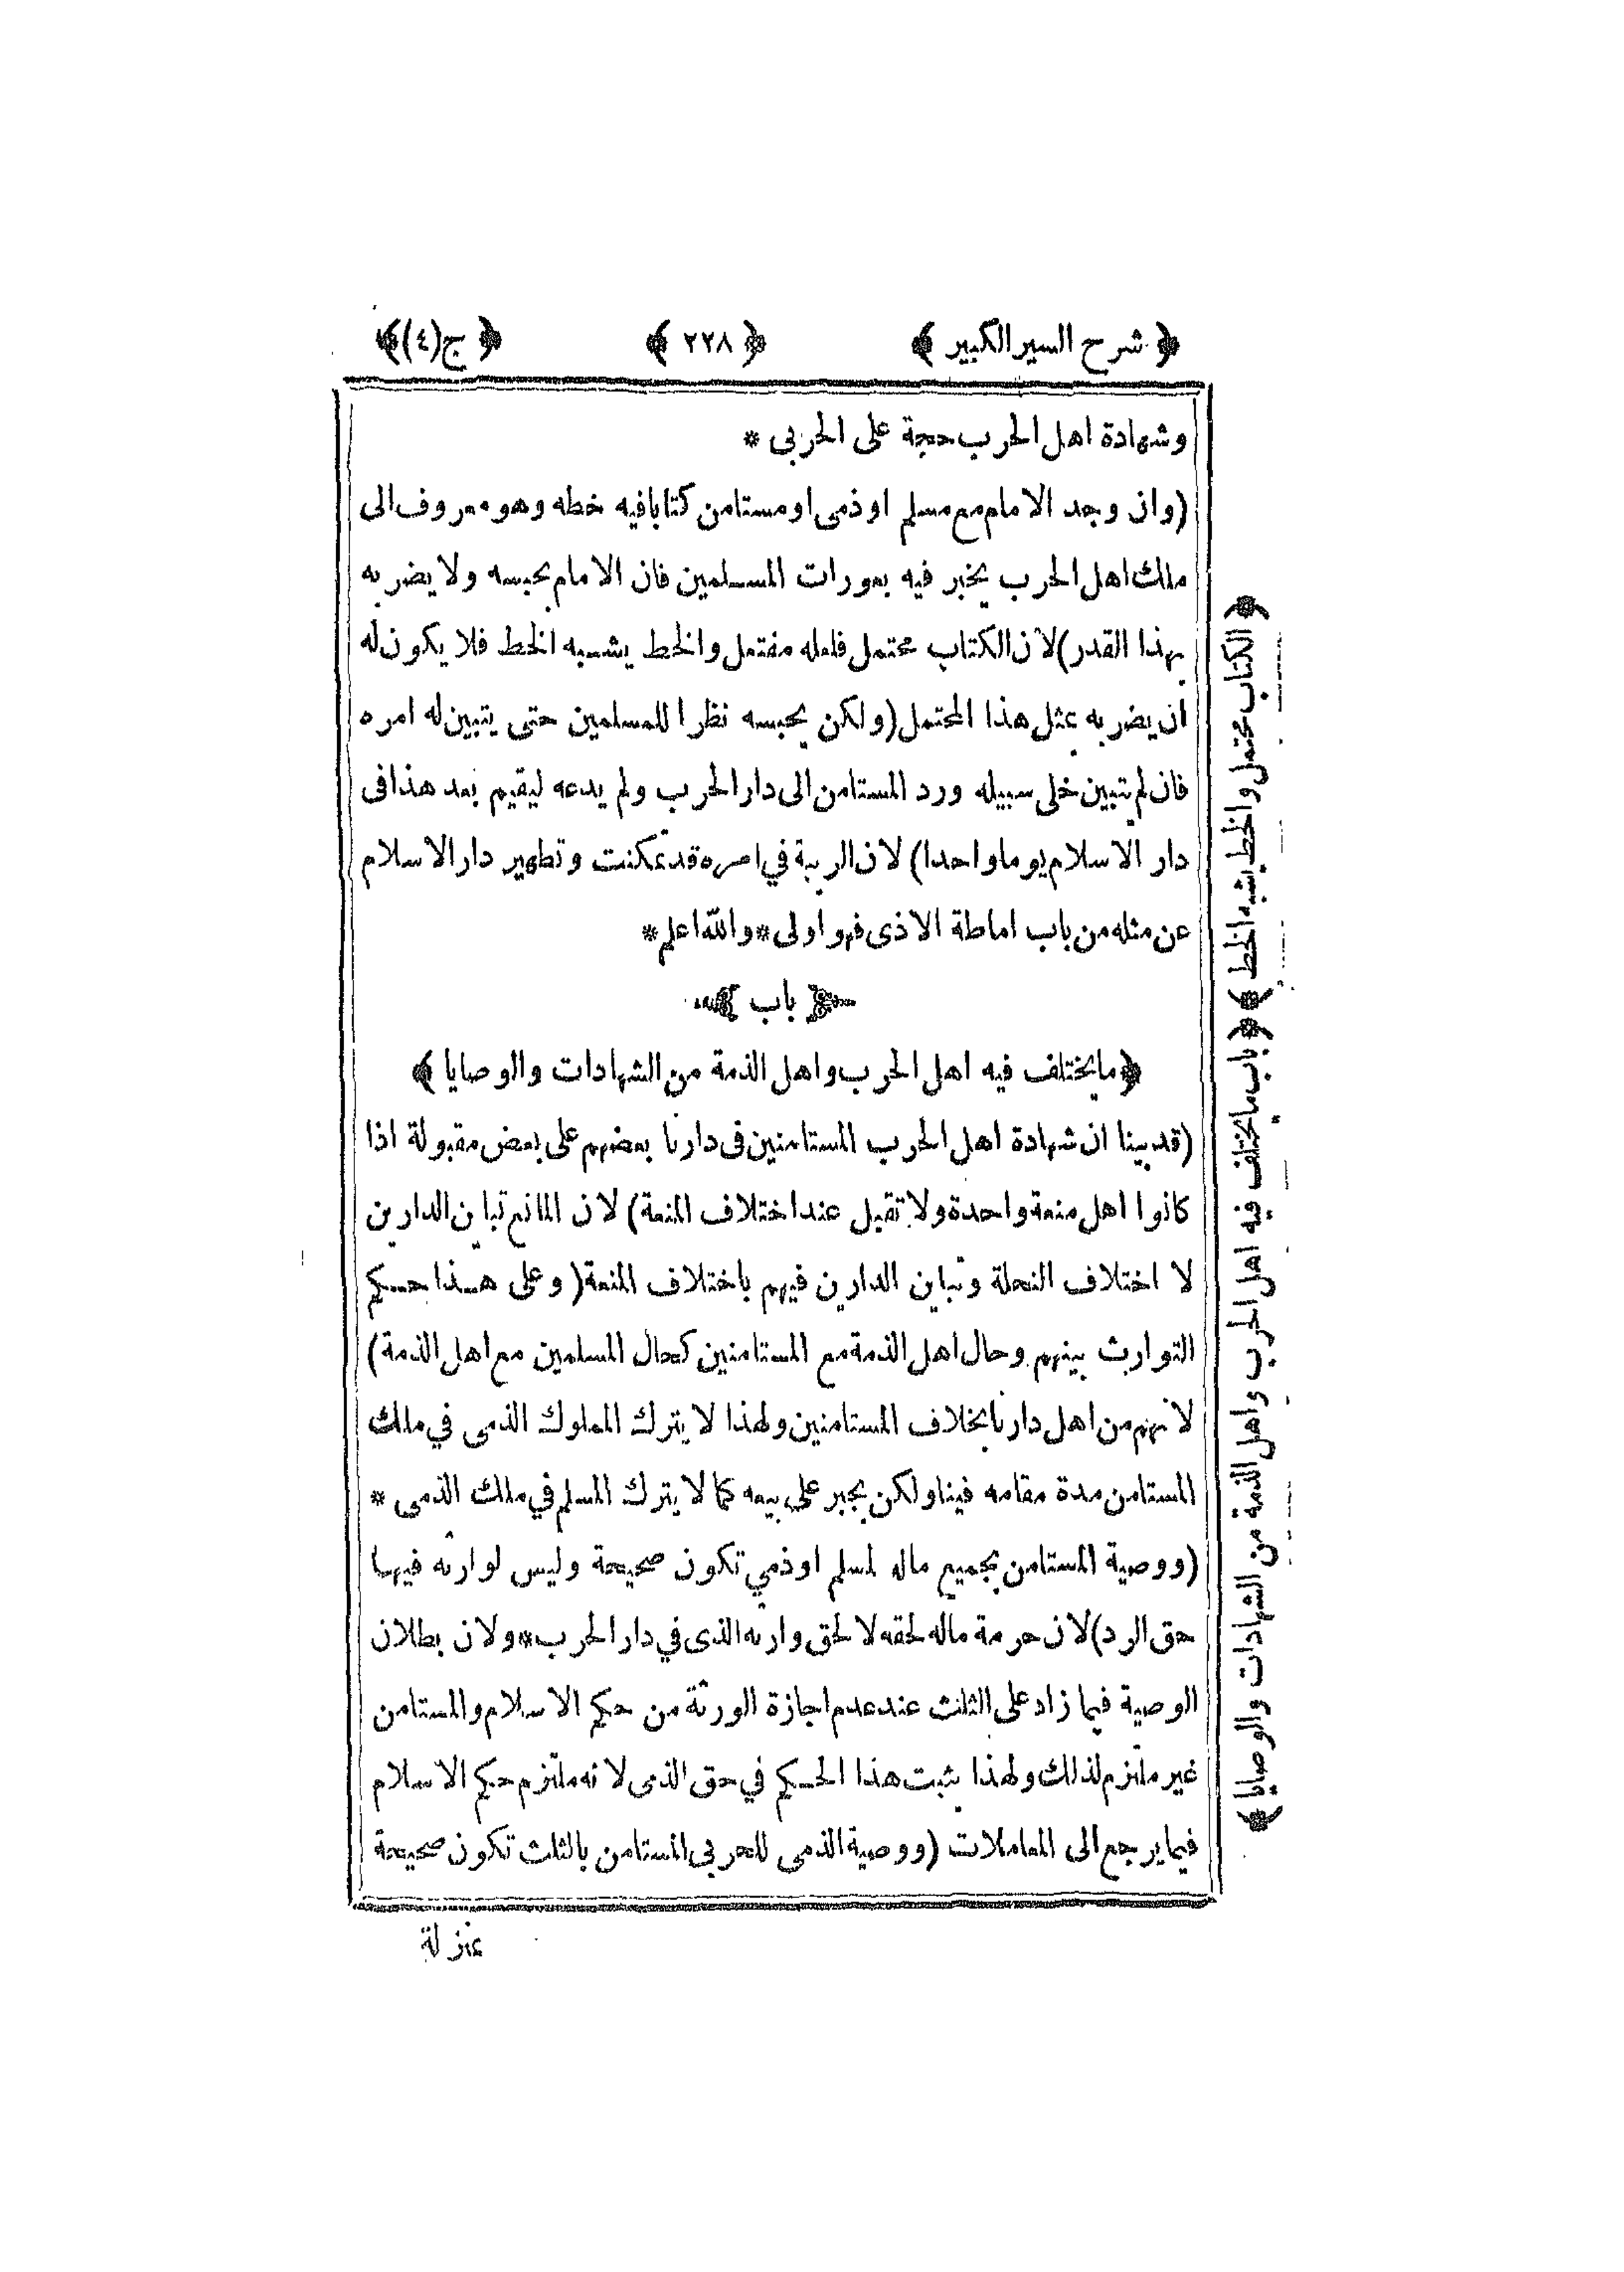 ﴿ شرح السير الكبير ﴾ ﴿ ٢٢٨ ﴾ ﴿ ج(٤) ﴾
وشهادة اهل الحرب حجة على الحربى *
(وان وجد الامام مع مسلم اوذمى اومستامن كتابا فيه خطه وهو معروف الى
ملك اهل الحرب يخبر فيه بعورات المسلمين فان الامام يحبسه ولا يضربه
بهذا القدر) لان الكتاب محتمل فلعله مفتعل والخط يشبه الخط فلا يكون له
ان يضربه بمثل هذا المحتمل (ولكن يحبسه نظرا للمسلمين حتى يتبين له امره
فان لم يتبين خلى سبيله ورد المستامن الى دار الحرب ولم يدعه ليقيم بعد هذا فى
دار الاسلام يوما واحدا) لان الريبة في امره قد تمكنت وتطهير دار الاسلام
عن مثله من باب اماطة الاذى فهو اولى * والله اعلم *
﴿ باب ﴾
﴿ مايختلف فيه اهل الحرب واهل الذمة من الشهادات والوصايا ﴾
(قد بينا ان شهادة اهل الحرب المستامنين فى دارنا بعضهم على بعض مقبولة اذا
كانوا اهل منعة واحدة ولا تقبل عند اختلاف المنعة) لان المانع تباين الدارين
لا اختلاف النحلة وتباين الدارين فيهم باختلاف المنعة (وعلى هذا حكم
التوارث بينهم وحال اهل الذمة مع المستامنين كحال المسلمين مع اهل الذمة)
لانهم من اهل دارنا بخلاف المستامنين ولهذا لا يترك المملوك الذمى في ملك
المستامن مدة مقامه فينا ولكن يجبر على بيعه كما لا يترك المسلم في ملك الذمى *
(ووصية المستامن بجميع ماله لمسلم اوذمي تكون صحيحة وليس لوارثه فيها
حق الرد) لان حرمة ماله لحقه لا لحق وارثه الذى في دار الحرب * ولان بطلان
الوصية فيما زاد على الثلث عند عدم اجازة الورثة من حكم الاسلام والمستامن
غير ملتزم لذلك ولهذا يثبت هذا الحكم في حق الذمى لانه ملتزم حكم الاسلام
فيما يرجع الى المعاملات (ووصية الذمى للحربى المستامن بالثلث تكون صحيحة
بمنزلة
﴿ الكتاب محتمل والخط يشبه الخط ﴾ ﴿ باب مايختلف فيه اهل الحرب واهل الذمة من الشهادات والوصايا ﴾